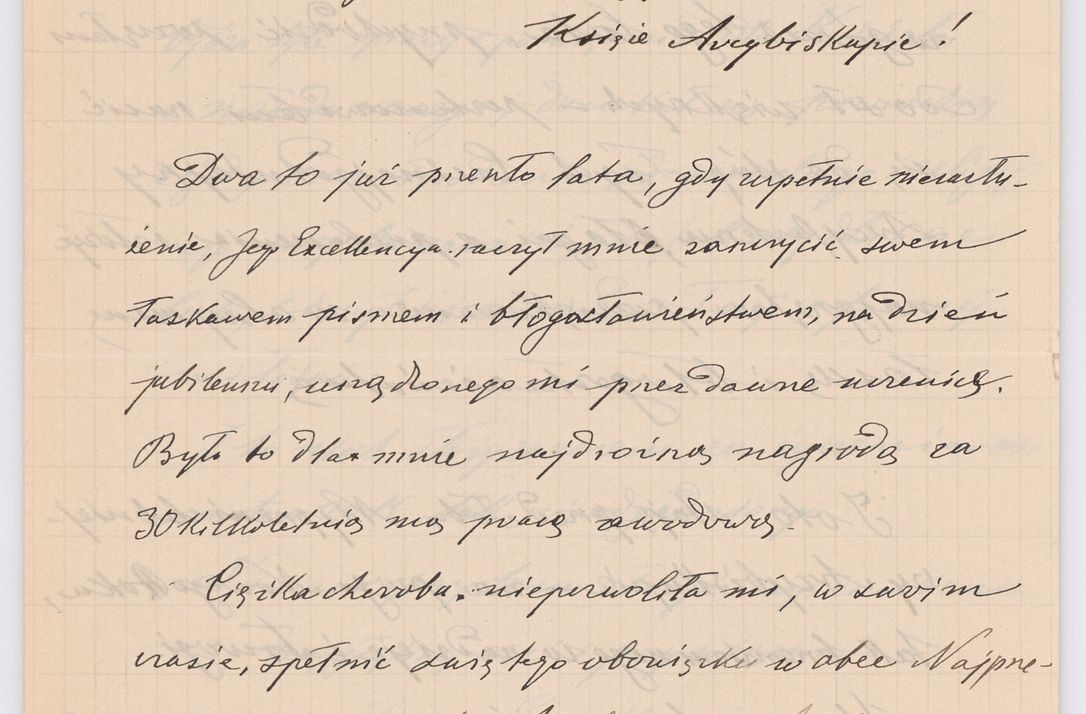 Księże Arcybiskupie!
Dwa to już przeszło lata, gdy zupełnie niezasłu-
żenie, Jego Excellencya raczył mnie zaszczycić swem
łaskawem pismem i błogosławieństwem, na dzień
jubileuszu, urządzonego mi przez dawne uczenice.
Było to dla mnie najdroższą nagrodą za
30 kilkoletnią mą pracę zawodową.
Ciężka choroba nie pozwoliła mi, w swoim
czasie, spełnić świętego obowiązku w obec Najprze-